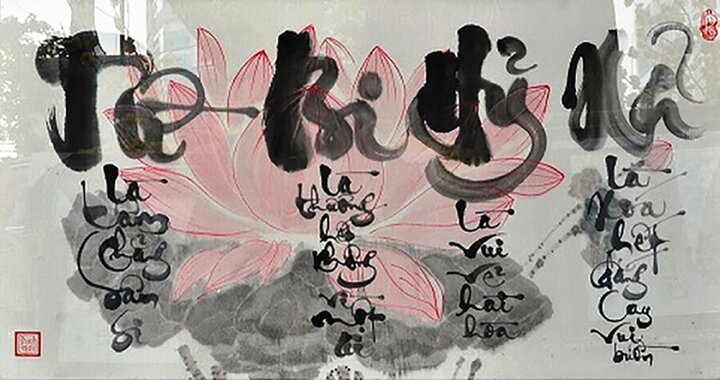 Từ Bi Hỷ Xả
Là
tâm
chẳng
sân
si
Là
thương
hết
không
vì
một
ai
Là
vui
vẻ
hài
hòa
Là
xóa
hết
đắng
cay
vui
buồn